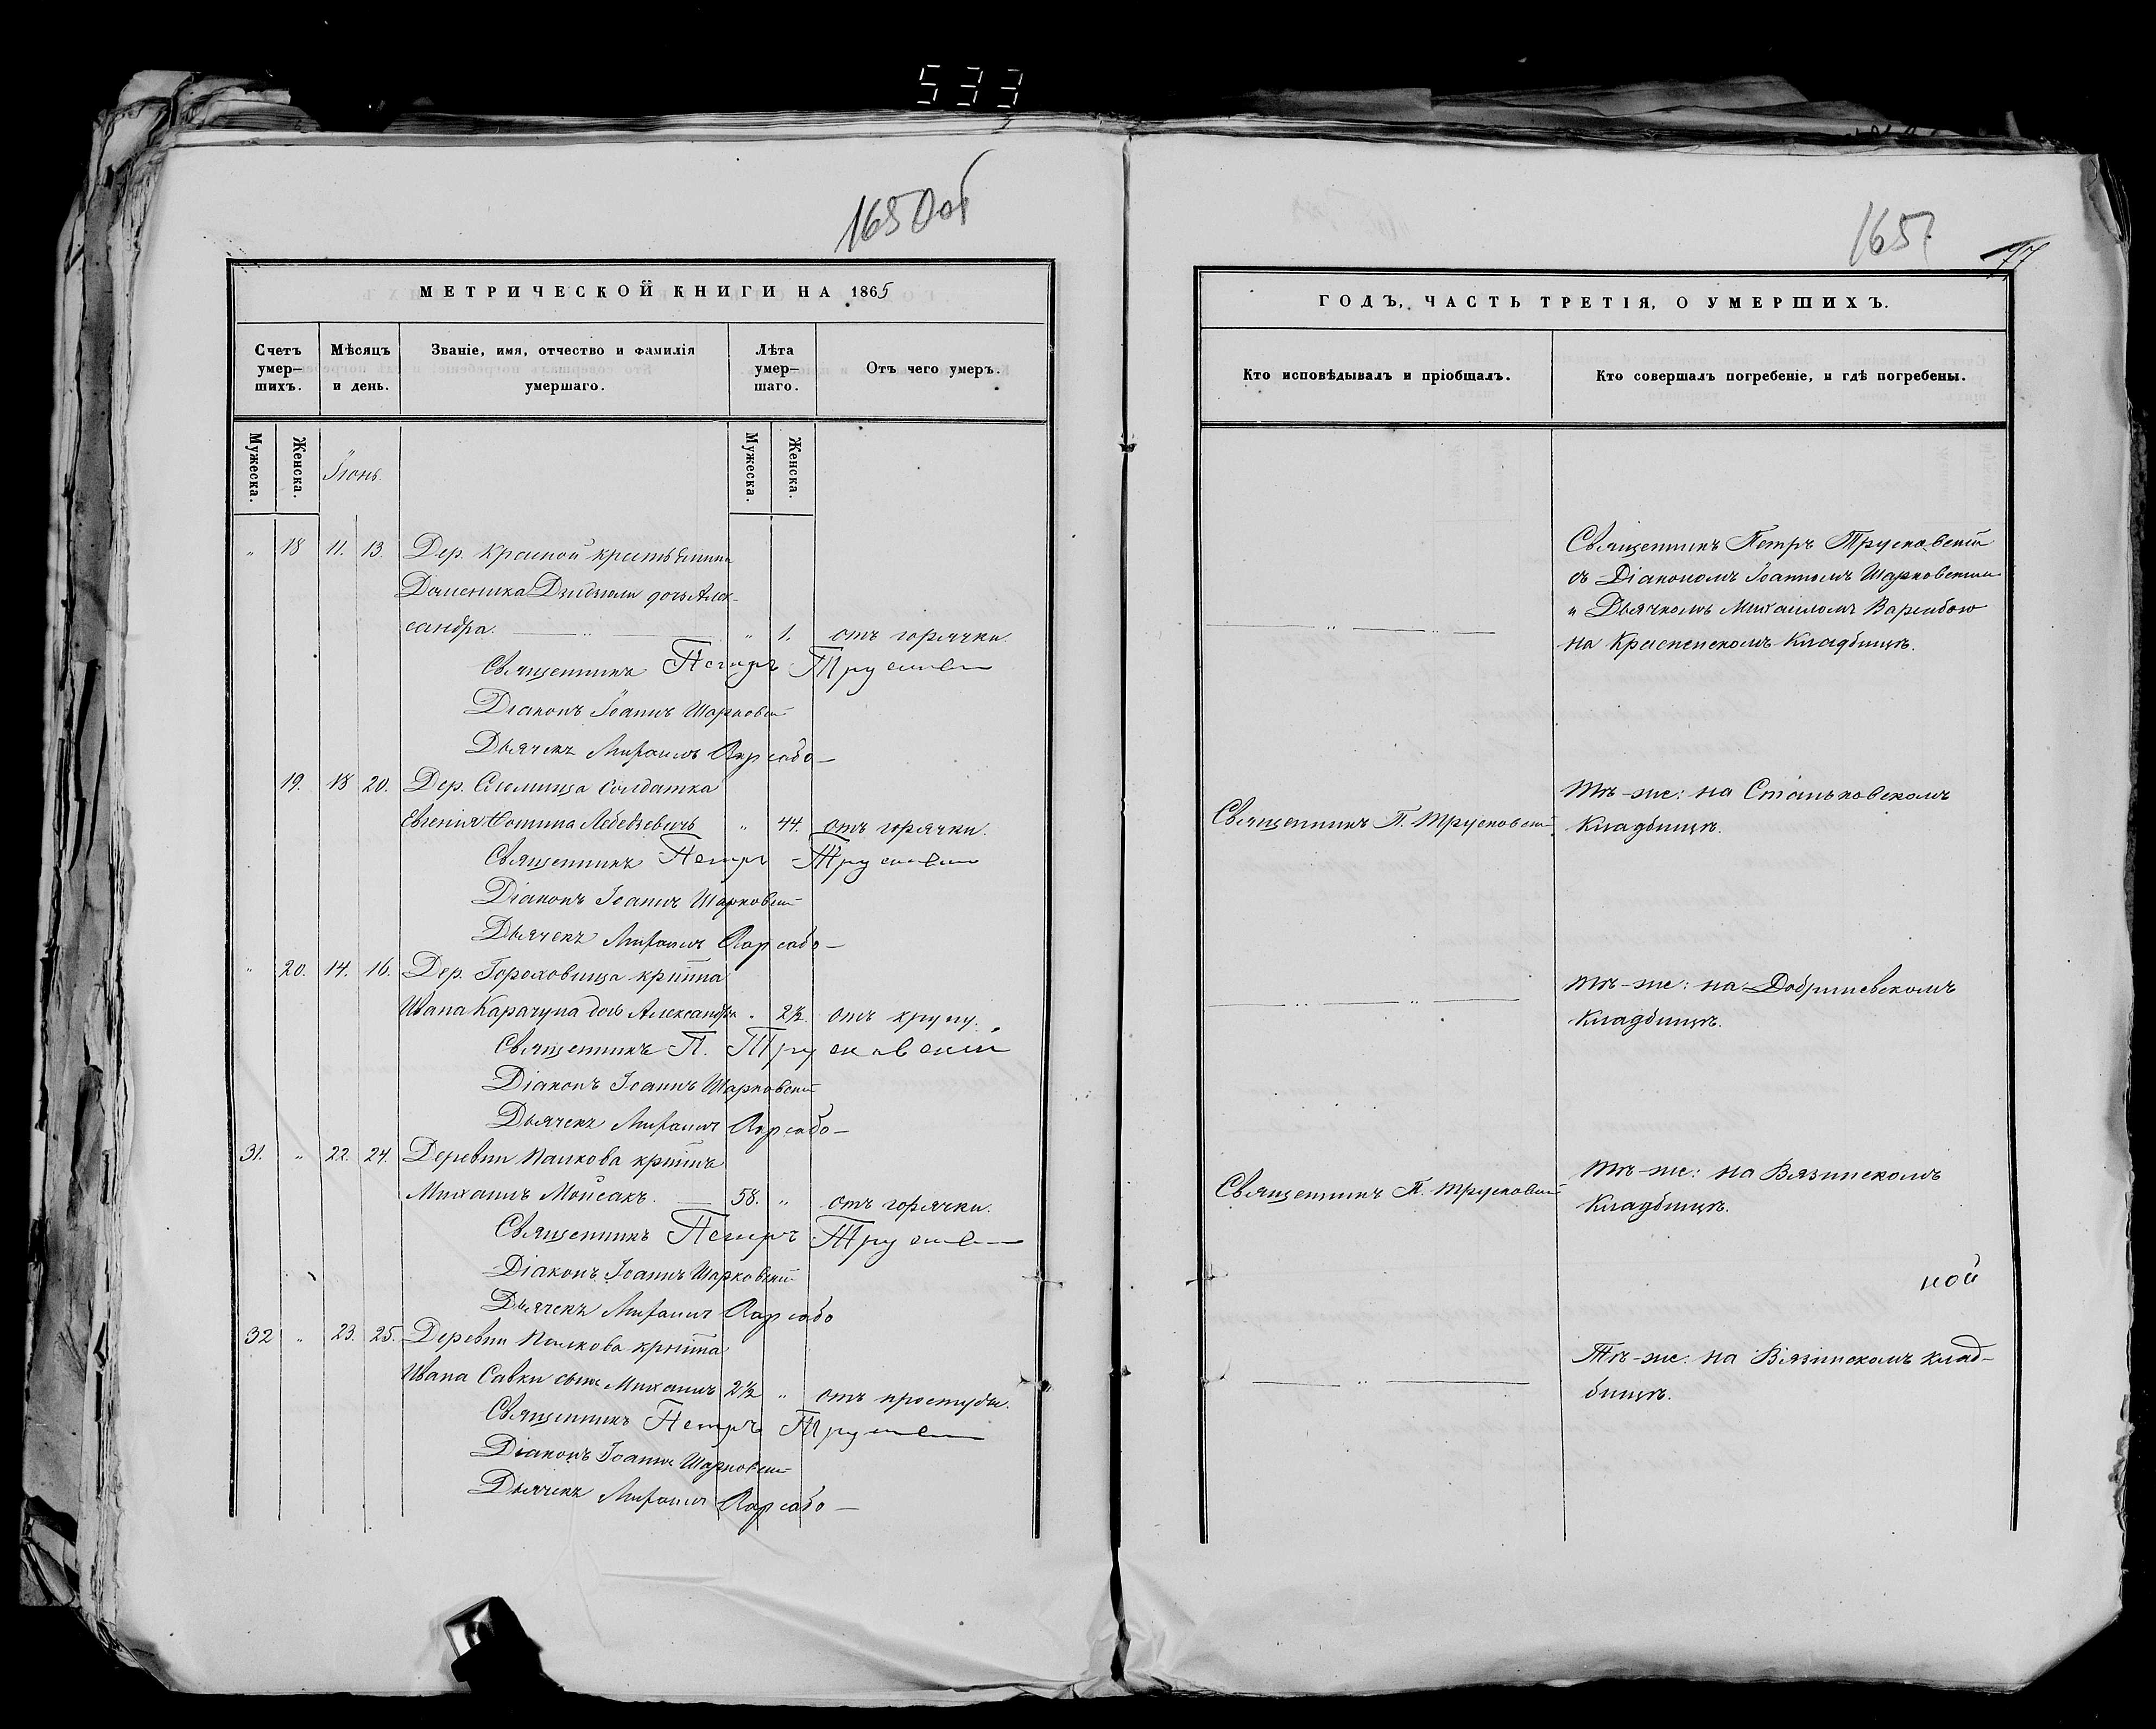 533
1650 об
МЕТРИЧЕСКОЙ КНИГИ НА 1865
Счетъ умер-шихъ.
Мѣсяцъ и день.
Званіе, имя, отчество и фамилія умершаго.
Лѣта умер-шаго.
Отъ чего умеръ.
Мужеска.
Женска.
Іюнь.
Мужеска.
Женска.
" 18 11. 13. Дер. Красной крестьянина
Доменика Дзидзюли дочь Алек-
сандра. " 1. отъ горячки.
Священникъ Петръ Трусковскій
Діаконъ Іоаннъ Шарковскій
Дьячекъ Михаилъ Варсабо
19. 18 20. Дер. солдатка
Евгенія Фомина Лебедзевичъ " 44. отъ горячки.
Священникъ Петръ Трусковскій
Діаконъ Іоаннъ Шарковскій
Дьячекъ Михаилъ Варсабо
" 20. 14. 16. Дер. Гороховища кр-на
Ивана Карачуна дочь Александра " 2½ отъ крупу.
Священникъ П. Трусковскій
Діаконъ Іоаннъ Шарковскій
Дьячекъ Михаилъ Варсабо
31. " 22. 24. Деревни Палкова кр-нъ
Михаилъ Мойсакъ. 58. " отъ горячки.
Священникъ Петръ Трусковскій
Діаконъ Іоаннъ Шарковскій
Дьячекъ Михаилъ Варсабо
32 " 23. 25. Деревни Палкова кр-на
Ивана Савки сынъ Михаилъ 2½ " отъ простуды.
Священникъ Петръ Трусковскій
Діаконъ Іоаннъ Шарковскій
Дьячекъ Михаилъ Варсабо
1651
77
ГОДЪ, ЧАСТЬ ТРЕТІЯ, О УМЕРШИХЪ.
Кто исповѣдывалъ и пріобщалъ.
Кто совершалъ погребеніе, и гдѣ погребены.
Священникъ Петръ Трусковскій
съ Діакономъ Іоанномъ Шарковскимъ
и Дьячкомъ Михаиломъ Варсабою
на Красненскомъ Кладбищѣ.
Священникъ П. Трусковскій
Тѣ-же: на Станьковскомъ
Кладбищѣ.
Тѣ-же: на Добриневскомъ
Кладбищѣ.
Священникъ П. Трусковскій
Тѣ-же: на Вязинскомъ
Кладбищѣ.
ной
Тѣ-же: на Вязинскомъ клад-
бищѣ.